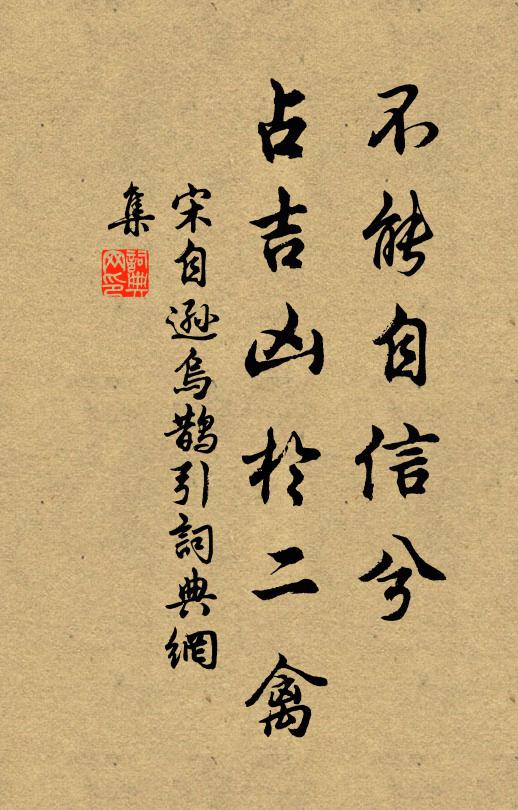 不能自信兮
占吉凶於二禽
宋自遜烏鵲引詞典網
集
詞典
网印